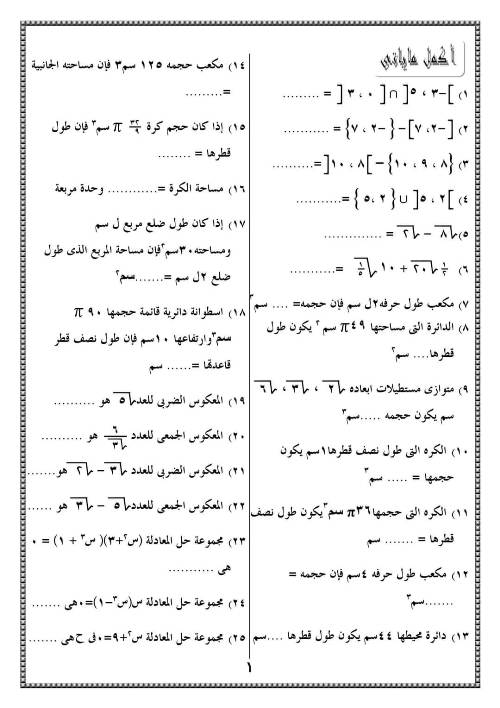 أكمل ما يأتى
١) [-٣ ، ٥] ∩ [٠ ، ٣] = .........
٢) [-٢، ٧] - {-٢ ، ٧} = ...........
٣) {٨ ، ٩ ، ١٠} - [٨ ، ١٠] =..........
٤) [٢ ، ٥[ ∪ {٢ ،٥} =............
٥) √٨ - √٢ = ..............
٦) ١/٢ √٢٠ + ١٠ √١/٥ =..........
٧) مكعب طول حرفه ٢ل سم فإن حجمه= .... سم٣
٨) الدائرة التى مساحتها ٤٩π سم ٢ يكون طول
قطرها.... سم٢
٩) متوازى مستطيلات ابعاده √٢ ، √٣ ، √٦
سم يكون حجمه .....سم٣
١٠) الكره التى طول نصف قطرها ١سم يكون
حجمها = ..... سم٣
١١) الكره التى حجمها ٣٦π سم٣يكون طول نصف
قطرها = ....... سم
١٢) مكعب طول حرفه ٤سم فإن حجمه =
.......سم٣
١٣) دائرة محيطها ٤٤سم يكون طول قطرها ....سم
١٤) مكعب حجمه ١٢٥ سم٣ فإن مساحته الجانبية
=.........
١٥) إذا كان حجم كرة ٣٢/٢ π سم٣ فإن طول
قطرها = ........
١٦) مساحة الكرة =............ وحدة مربعة
١٧) إذا كان طول ضلع مربع ل سم
ومساحته٣٠سم٢فإن مساحة المربع الذى طول
ضلع ٢ل سم =.......سم٢
١٨) اسطوانة دائرية قائمة حجمها ٩٠ π
سم٣وارتفاعها ١٠سم فإن طول نصف قطر
قاعدتها =...... سم
١٩) المعكوس الضربى للعدد √٥ هو ..........
٢٠) المعكوس الجمعى للعدد ٦/√٣ هو ..........
٢١) المعكوس الضربى للعدد √٣ - √٢ هو.......
٢٢) المعكوس الجمعى للعدد √٥ - √٣ هو ......
٢٣) مجموعة حل المعادلة (س٢+٣)( س٣ + ١) = ٠
هى ...........
٢٤) مجموعة حل المعادلة س(س٣-١)=٠هى .......
٢٥) مجموعة حل المعادلة س٢+٩=٠فى ح هى .......
١